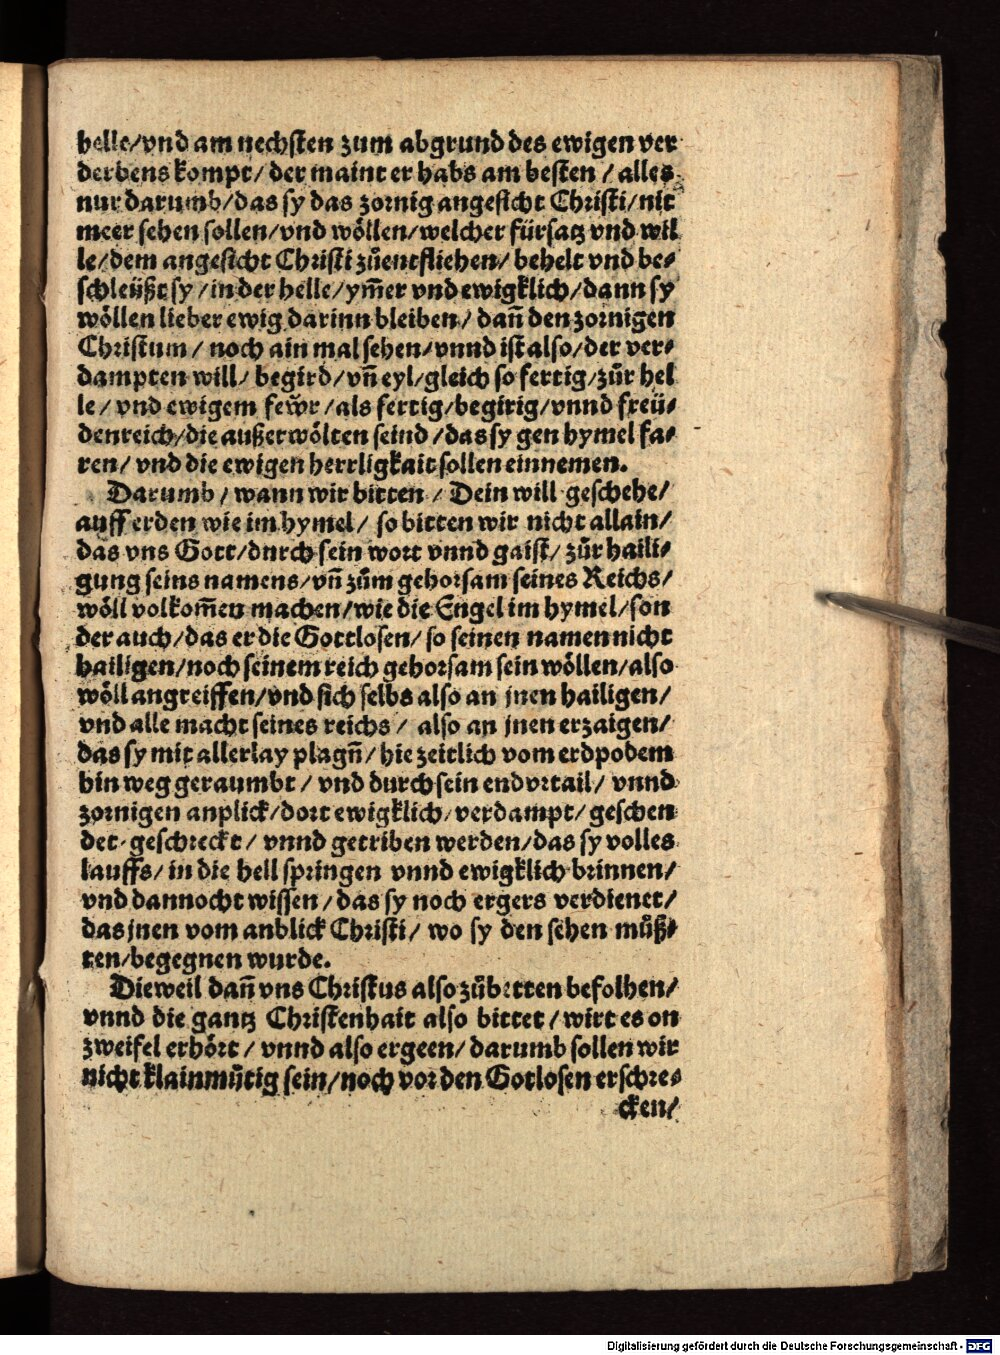 helle/vnd am nechsten zum abgrund des ewigen ver
derbens kompt/ der maint er habs am besten / alles
nur darumb/das sy das zornig angesicht Christi/nit
meer sehen sollen/vnd wöllen/welcher fürsatz vnd wil
le/dem angesicht Christi zůentfliehen/ behelt vnd be⸗
schleüßt sy /in der helle/ym̃er vnd ewigklich/dann sy
wöllen lieber ewig darinn bleiben/ dañ den zornigen
Christum/ noch ain mal sehen/vnnd ist also/der ver⸗
dampten will/ begird/vñ eyl/gleich so fertig/zůr hel
le/ vnd ewigem fewr /als fertig/begirig/vnnd freü⸗
denreich/die außerwölten seind /das sy gen hymel fa⸗
ren/ vnd die ewigen herrligkait sollen einnemen.
Darumb/wann wir bitten/ Dein will geschehe/
auff erden wie im hymel/ so bitten wir nicht allain/
das vns Gott/durch sein wort vnnd gaist/ zůr haili⸗
gung seins namens/vñ zům gehorsam seines Reichs/
wöll volkom̃en machen/wie die Engel im hymel/son
der auch/das er die Gottlosen/ so seinen namen nicht
hailigen/noch seinem reich gehorsam sein wöllen/also
wöll angreiffen/vnd sich selbs also an jnen hailigen/
vnd alle macht seines reichs / also an jnen erzaigen/
das sy mit allerlay plagñ/ hie zeitlich vom erdpodem
hin weg geraumbt / vnd durch sein endvrtail/ vnnd
zornigen anplick/dort ewigklich/verdampt/ geschen
det/geschreckt/ vnnd getriben werden/das sy volles
lauffs/in die hell springen vnnd ewigklich brinnen/
vnd dannocht wissen/das sy noch ergers verdienet/
das jnen vom anblick Christi/ wo sy den sehen můß⸗
ten/begegnen wurde.
Dieweil dañ vns Christus also zůbetten befolhen/
vnnd die gantz Christenhait also bittet/wirt es on
zweifel erhört / vnnd also ergeen/darumb sollen wir
nicht klainmůtig sein/noch vor den Gotlosen erschre⸗
cken/
Digitalisierung gefördert durch die Deutsche Forschungsgemeinschaft - DFG